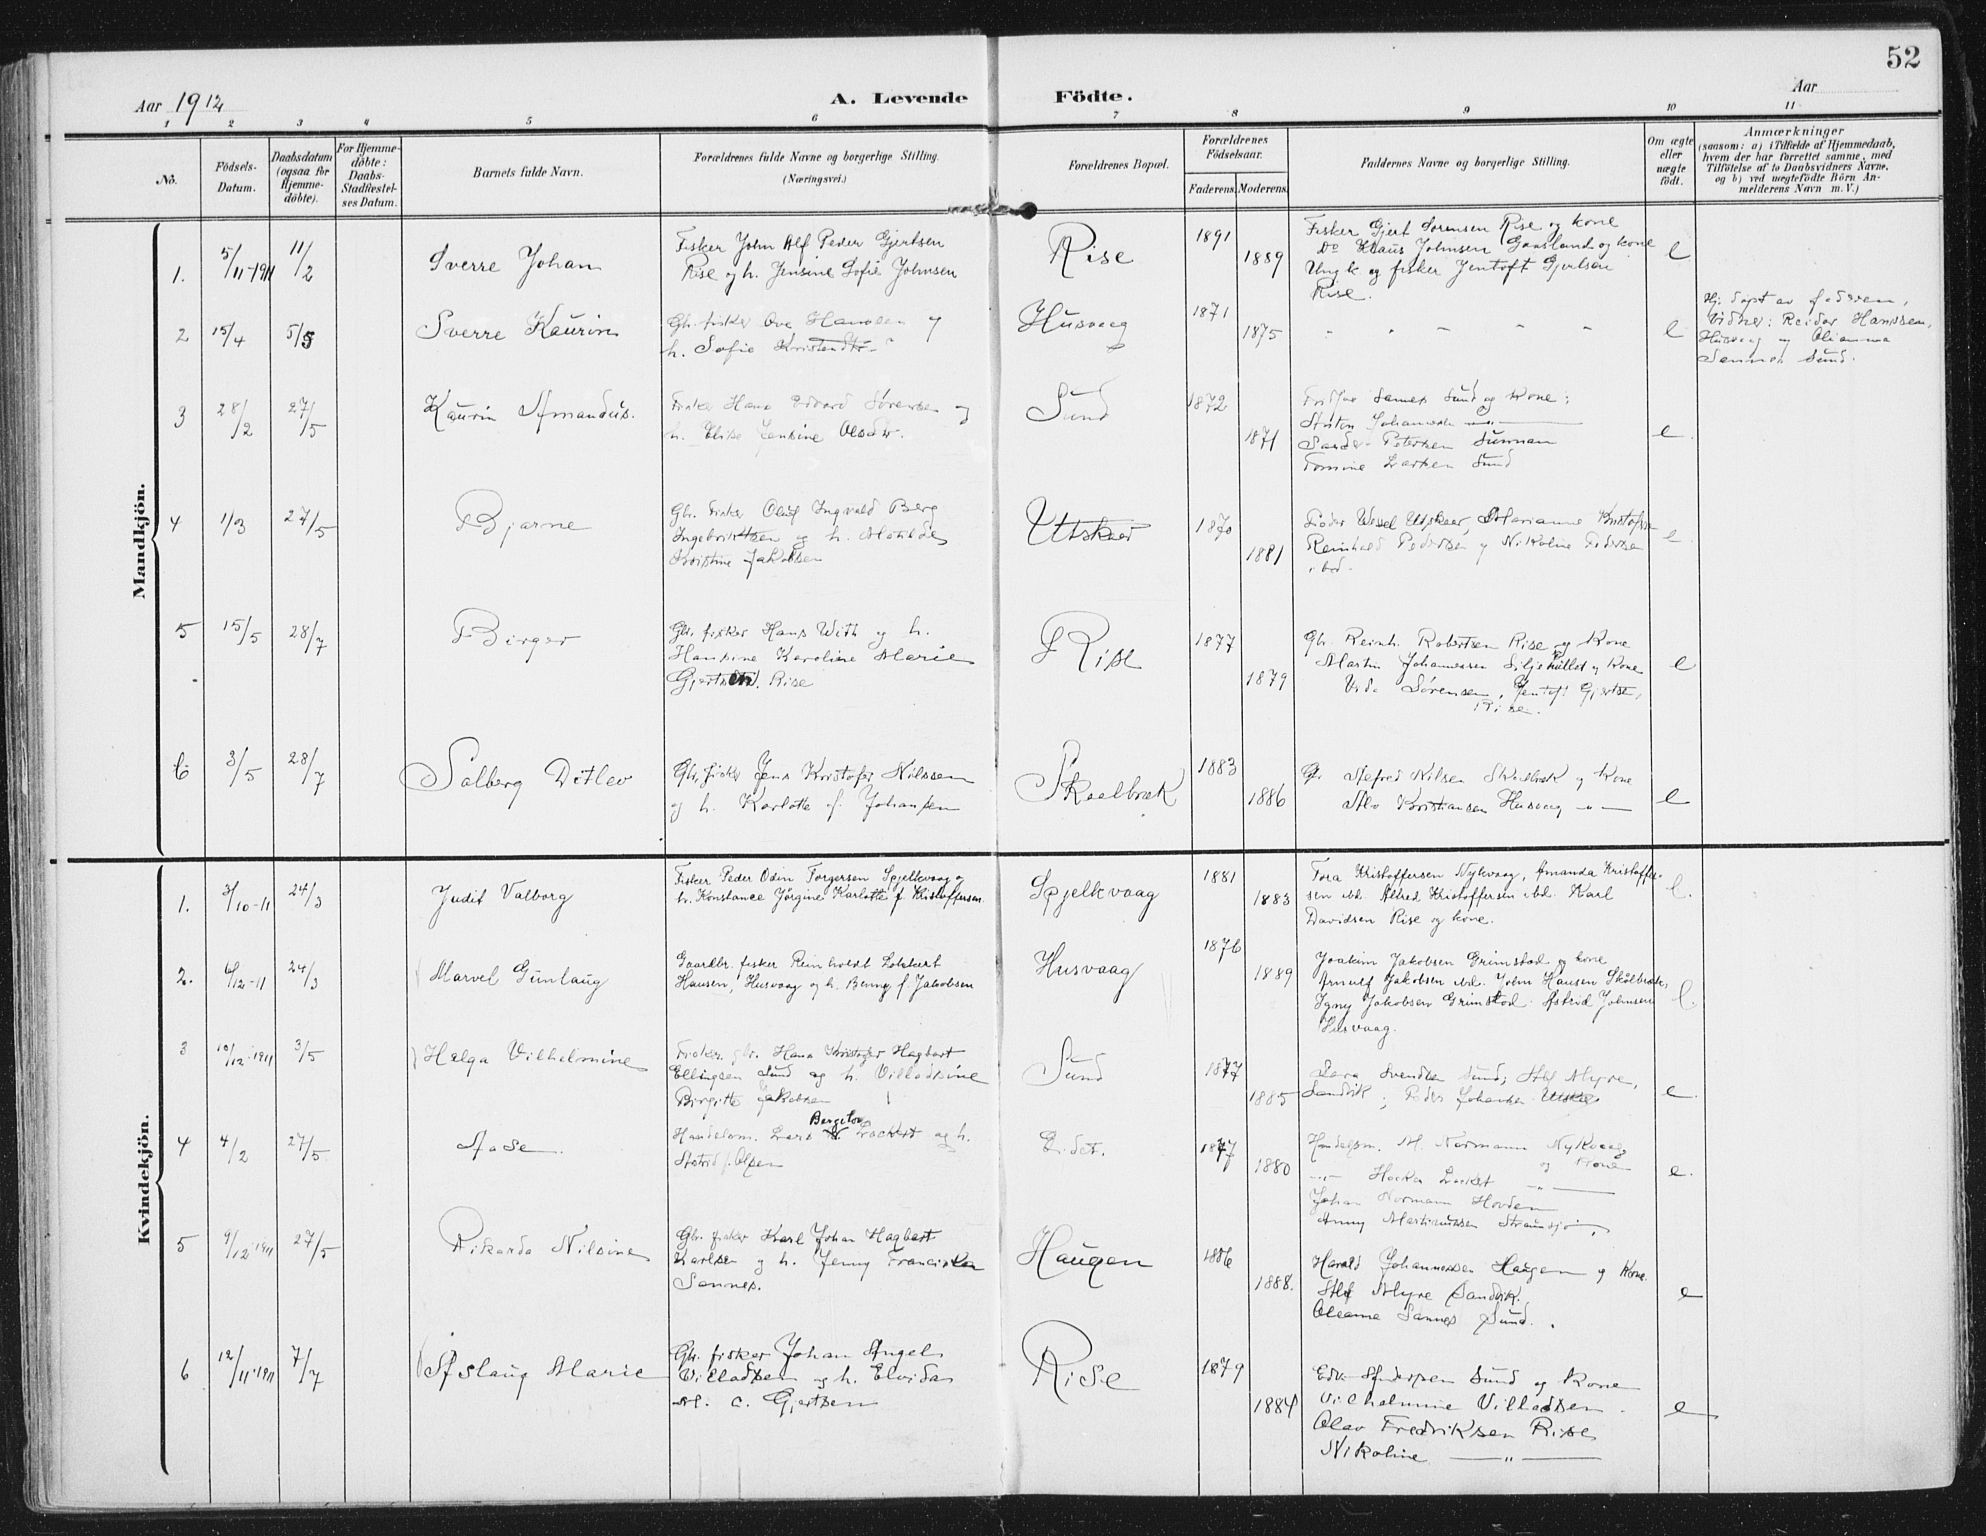 52
Aar 1912
A. Levende Födte.
Aar
1 2 3 4 5 6 7 8 9 10 11
No.
Födsels-Datum.
Daabsdatum (ogsaa for Hjemme-döbte).
For Hjemme-döbte: Daabs-Stadfæstel-ses Datum.
Barnets fulde Navn.
Forældrenes fulde Navne og borgerlige Stilling.
(Næringsvei.)
Forældrenes Bopæl.
Forældrenes Födselsaar.
Faderens. Moderens.
Faddernes Navne og borgerlige Stilling.
Om ægte eller uægte födt.
Anmærkninger
(saasom: a) i Tilfælde af Hjemmedaab,
hvem der har forrettet samme, med
Tilföielse af to Daabsvidners Navne,
og b) ved uægtefödte Börn An-
melderens Navn m. V.)
Mandkjön.
1. 5/11-1911 11/2 Sverre Johan
Fisker John Alf Peder Gjertsen
Rise og h. Jensine Sofie Johnsen
Rise 1891 1889
Fisker Gjert Sørensen Rise og kone
Do Klaus Johnsen Gaasland og kone
Ungk og fisker Jentoft Gjertsen
Rise.
e
2 15/4 5/5 Sverre Kaurin
Gbr. fisker Ove Hansen og
h. Sofie Kristendtr.
Husvaag 1871 1875
" " " " "
e
Hj. døpt av faderen,
Vidner: Reidar Hanssen,
Husvaag og Olianna
Sannes Sund.
3 28/2 27/5 Kaurin Amandus.
Fisker Hans Edvard Sørensen og
h. Elise Jensine Olsdtr.
Sund 1872 1871
Sannes Sund og kone;
Anton Johannesen
Petersen Sunnan
Tomine Larsen Sund
e.
4 1/3 27/5 Bjarne
Gbr. fisker Oluf Ingvald Berg
Ingebrigtsen og h. Motilde
Kristine Jakobsen
Utskeer 1870 1881
Peder Wessel Utskeer, Marianne Kristofs
Reinhald Pedersen og Nikoline Pedersen
ibd.
e.
5 15/5 28/7 Birger
Gbr. fisker Hans With og h.
Hansine Karoline Marie
Gjertsdtr. Rise
Rise 1877 1879
Gbr. Reinh. Robertsen Rise og kone
Martin Johannessen Siljehullet og kone
Sørensen, Jentoft Gjertsen,
Rise.
e
6 3/5 28/7 Solberg Ditlev
Gbr. fisker Jens Kristofer Nilssen
og h. Karlotte f. Johansen
Skaelbræk 1883 1886
Alfred Nilsen Skaelbræk og kone
Alv Kristiansen Husvaag — " —
e
Kvindekjön.
1. 3/10-11 24/3 Judit Valborg
Fisker Peder Odin Torgersen Spjelkvaag og
h. Konstance Jörgine Karlotte f. Kristoffersen.
Spjelkvaag 1881 1883
Tora Kristoffersen Nykvaag, Amanda Kristoffer-
sen ibd. Alfred Kristoffersen ibd. Karl
Davidsen Rise og kone.
e.
2. 6/12-11 24/3 Marvel Gunlaug
Gaardbr. fisker Reinholdt Lokkert
Hansen, Husvaag og h. Benny f. Jakobsen
Husvaag 1876 1889
Joakim Jakobsen Grimstad og kone
Arnulf Jakobsen ibd. John Hansen Skölbræk,
Jakobsen Grimstad. Astrid Johnsen
Husvaag.
e.
3 10/12-1911 3/5 Helga Vilhelmine
Fisker, gbr. Hans Kristofer Hagbart
Ellingsen Sund og h. Villadsine
Birgitte Jakobsen
Sund 1877 1885
Svendsen Sund; Alf Myre,
Sandvik; Peder Johansen
e.
4 4/2 27/5 Aase.
Handelsm. Lars Bergiton Lockert og h.
Astrid f. Olsen
Eidet. 1877 1880
Handelsm. M. Normann Nykvaag
og kone
Lockert — " —
Johan Normann Hovden
Anny Martinussen Straumsjøen,
e.
5 9/12-1911 27/5 Rikarda Nilsine
Gbr. fisker Karl Johan Hagbart
Karlsen og h. Jenny Franciska
Sannes.
Haugen 1886 1888.
Harald Johannessen Haugen og kone.
Alf Myre Sandvik.
Oleanna Sannes Sund.
e
6 12/11-1911 7/7 Aslaug Marie
Gbr. fisker Johan Angel
Villadsen og h. Elvida
M. C. Gjertsen
Rise 1879 1884
Andersen Sund og kone
Vilhelmine Villadsen.
Olav Fredriksen Rise
Nikoline — " —
e